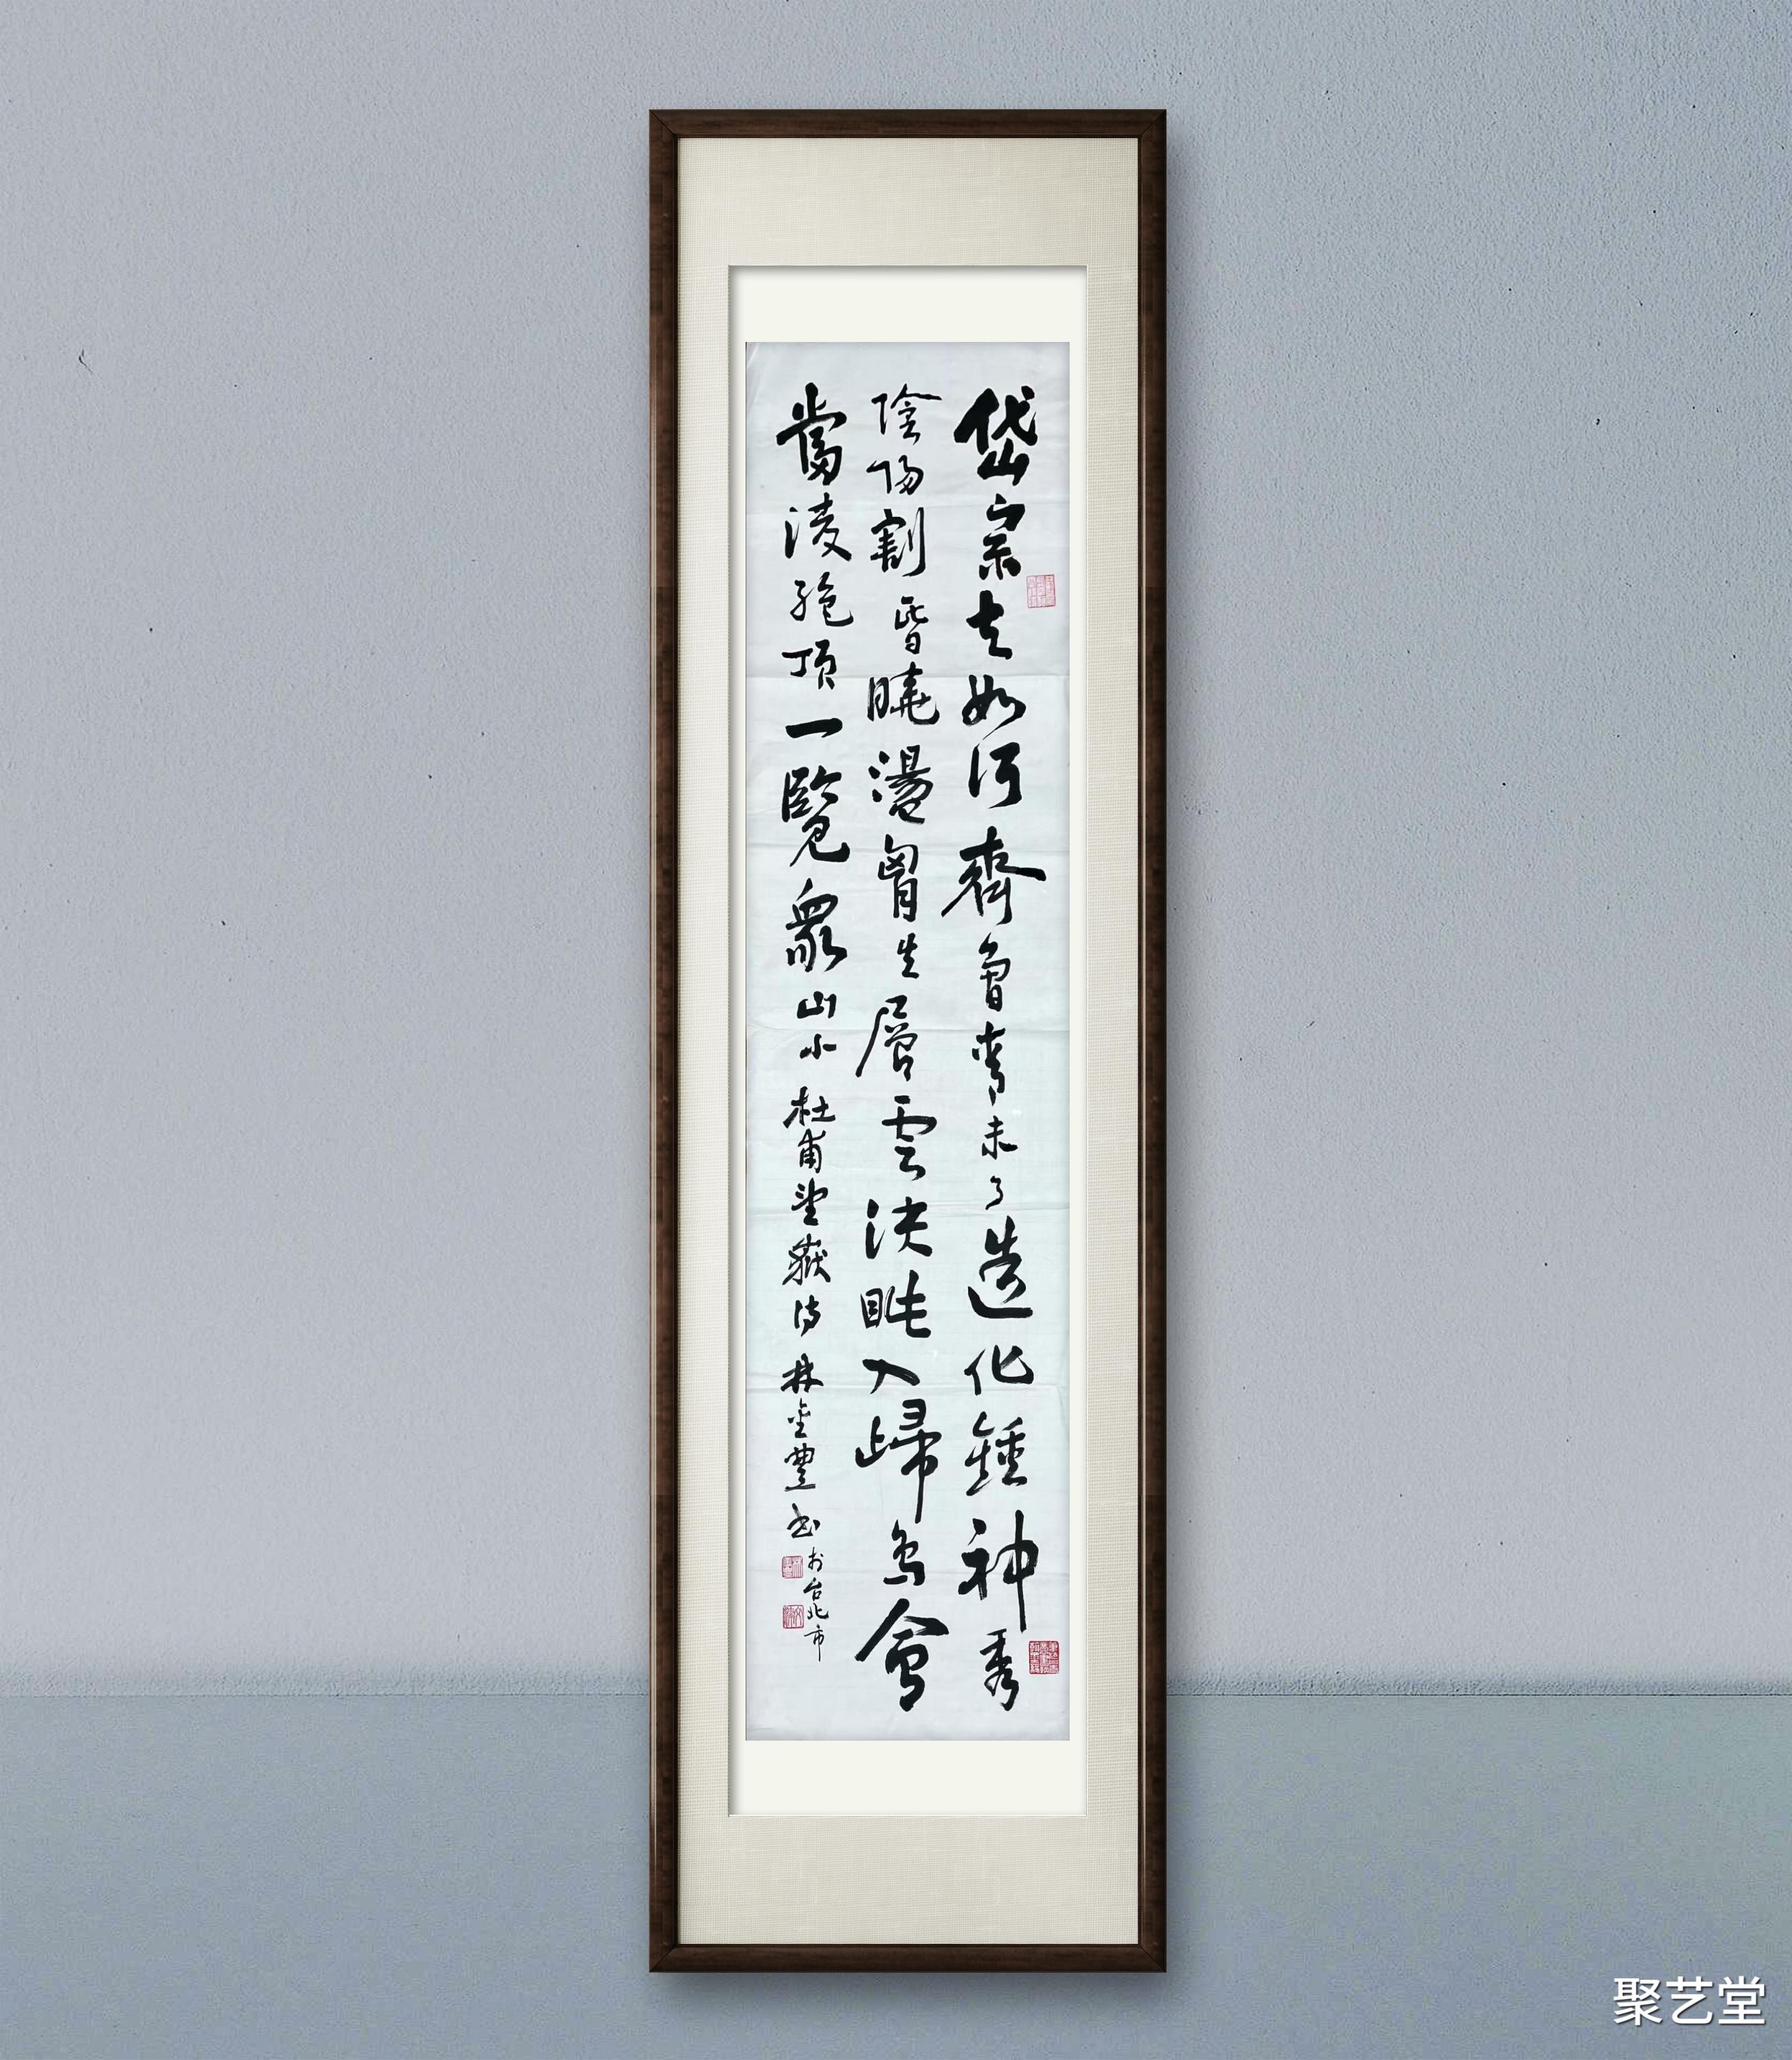 岱宗夫如何齊魯青未了造化鍾神秀
陰陽割昏曉盪胷生層雲決眦入歸鳥會
當淩絶頂一覽衆山小 杜甫望嶽詩 林金豐書
於台北市
聚艺堂